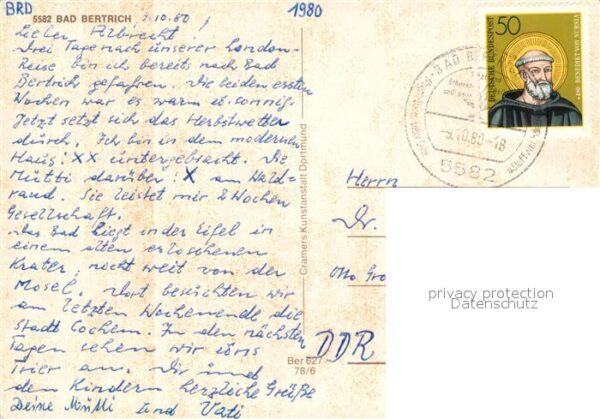 BRD
1980
5582 BAD BERTRICH 9.10.80!
Lieber Albrecht.
Drei Tage nach unserer London-
Reise bin ich bereits nach Bad
Bertrich gefahren. Die beiden ersten
Wochen war es warm u. sonnig.
Jetzt setzt sich das Herbstwetter
durch. Ich bin in dem modernen
Haus: XX untergebracht. Die
Mutti darüber: X am Wald-
rand. Sie leistet mir 2 Wochen
Gesellschaft.
Das Bad liegt in der Eifel in
einem alten erloschenen
Krater, nicht weit von der
Mosel. Dort besuchten wir
am letzten Wochenende die
Stadt Cochem. In den nächsten
Tagen sehen wir uns
Trier an. Dir und
den Kindern herzliche Grüße
Deine Mutti und Vati
Cramers Kunstanstalt Dortmund
Ber 627
78/6
50
DEUTSCHE BUNDESPOST
480 BENEDIKT VON NURSIA
BAD
9.10.80-18
5582
Herrn
Dr.
Otto Gro
DDR
privacy protection
Datenschutz